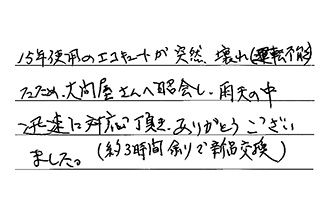 15年使用のエコキュートが突然、壊れ(運転不能)
たため、大問屋さんへ照会し、雨天の中
迅速に対応頂き、ありがとうござい
ました。(約3時間余りで新品交換)